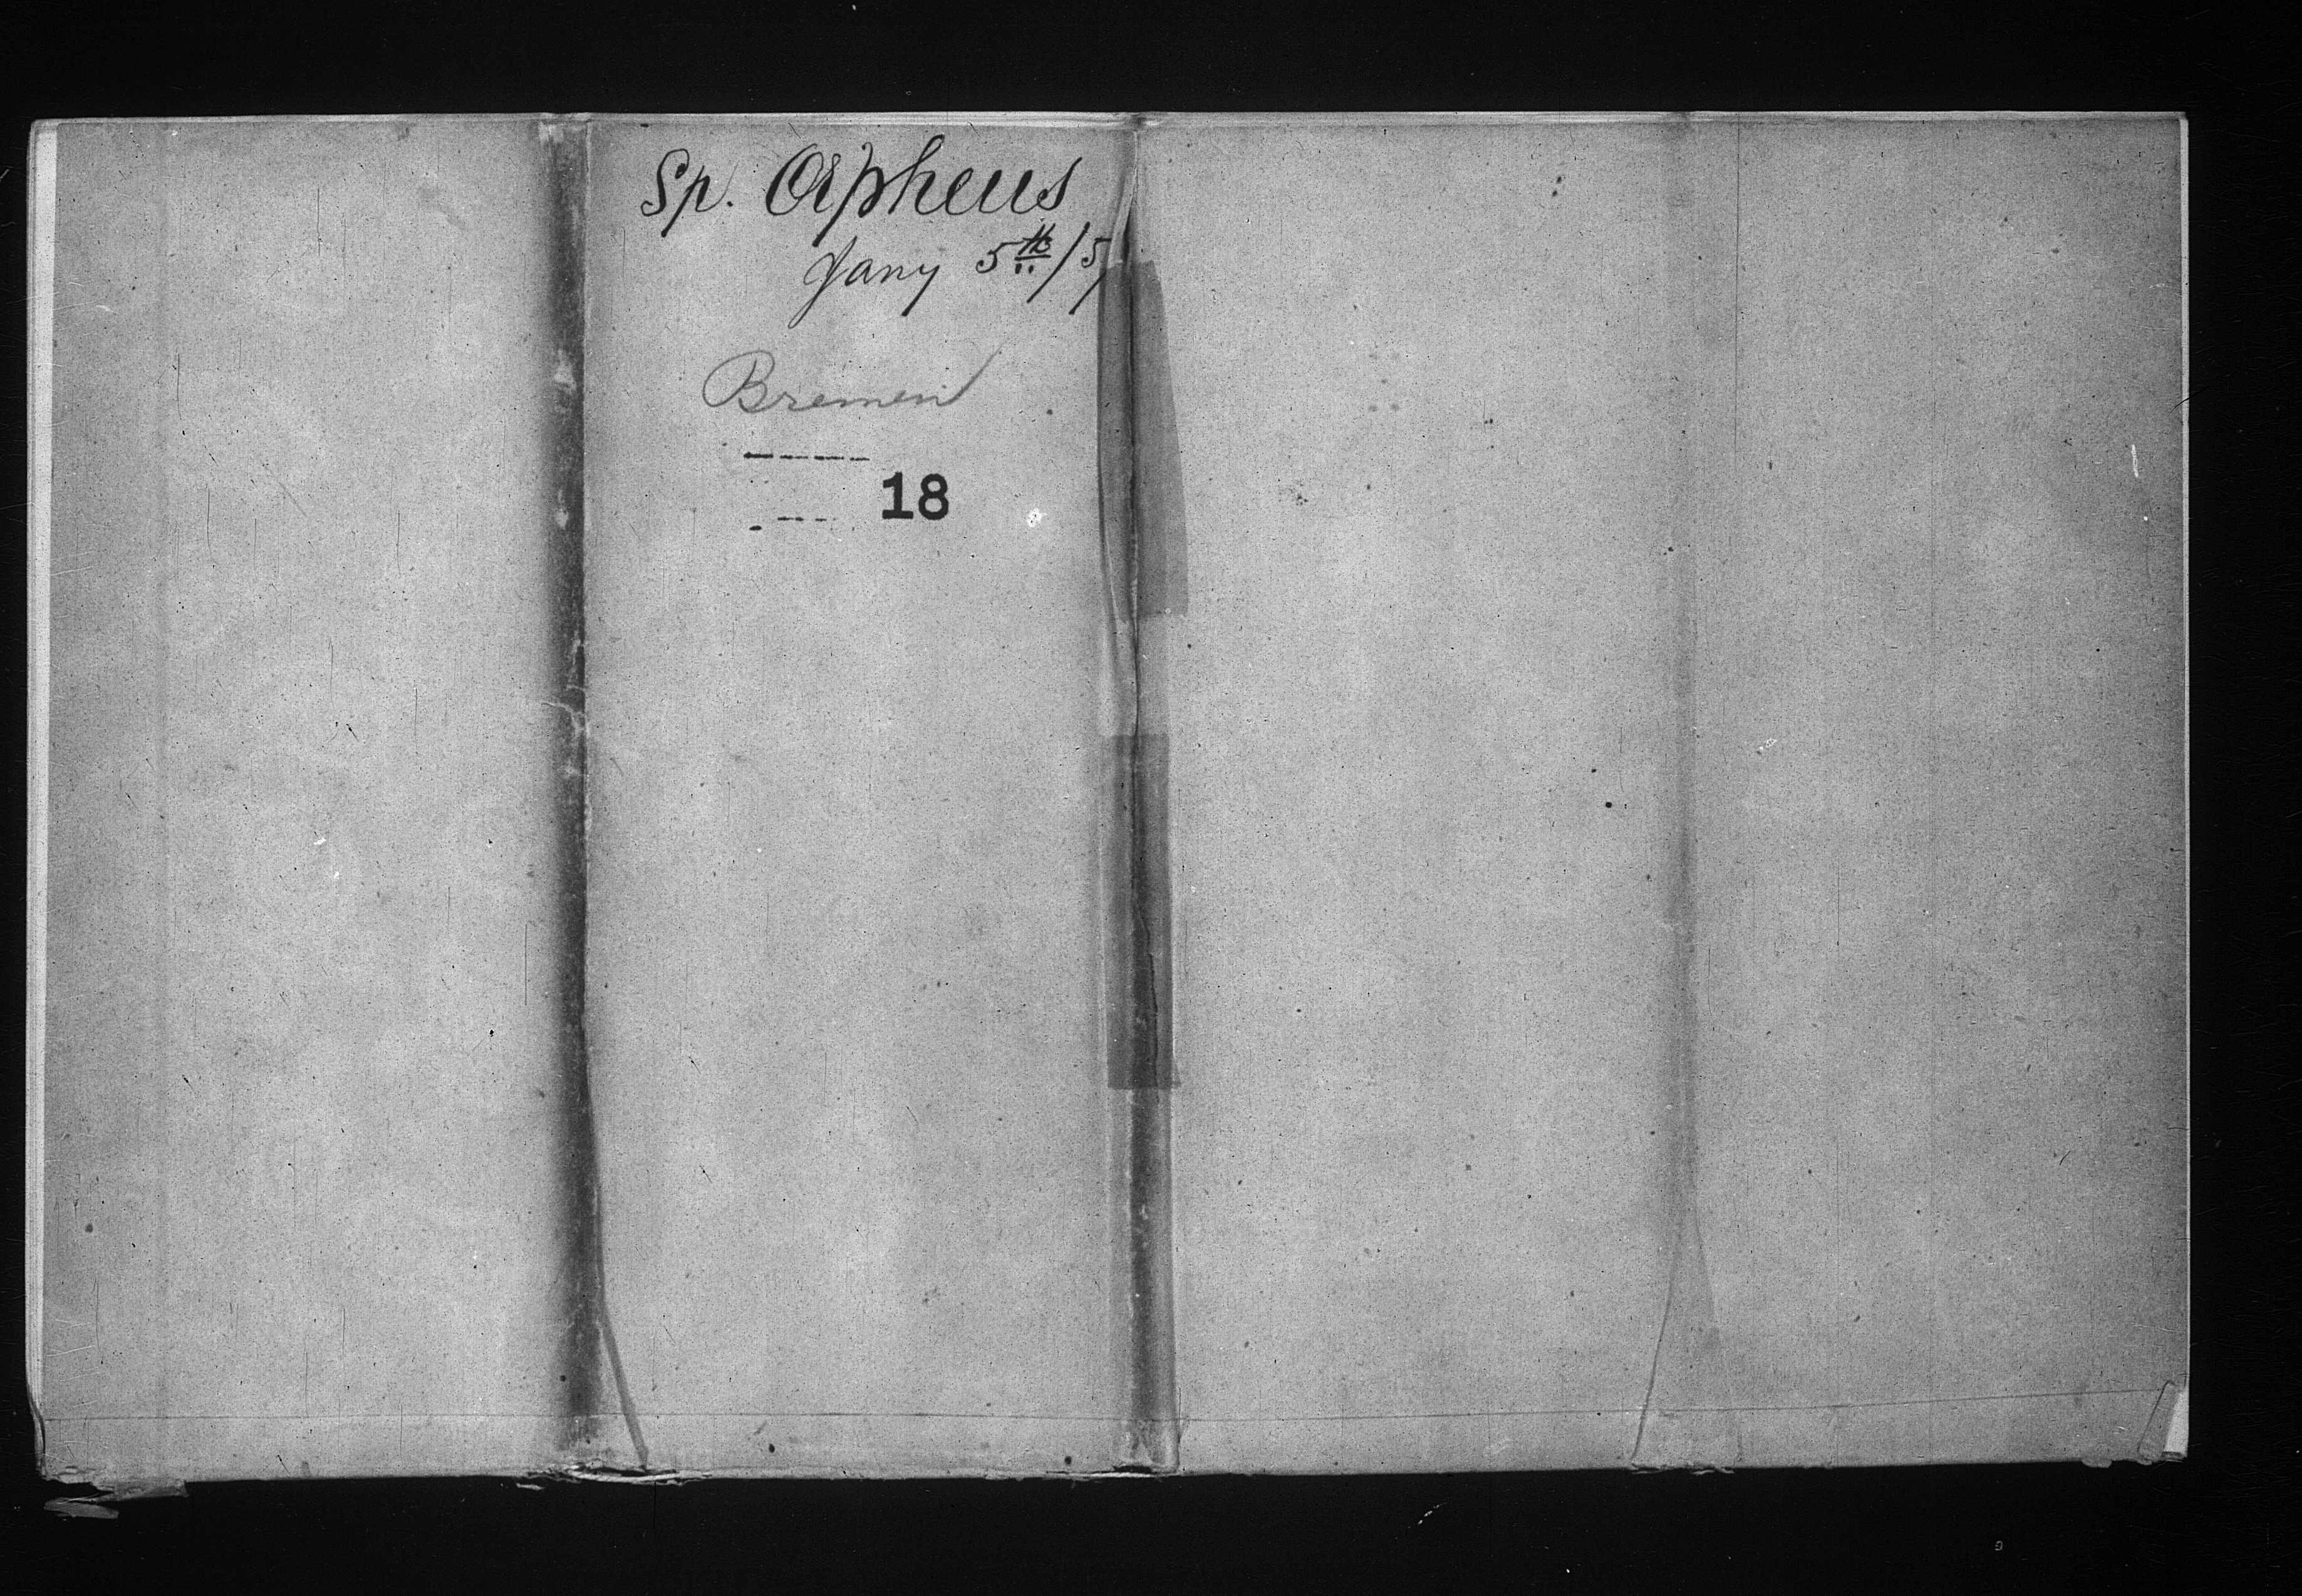 Sp. Orpheus
Jany 5th/57
Bremen
18